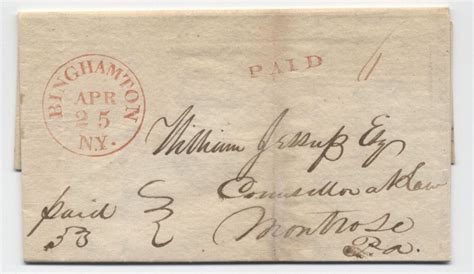 BINGHAMTON
APR
25
N.Y.
PAID
6
William Jessup Esq
Councillor at Law
Montrose
Pa.
paid
53